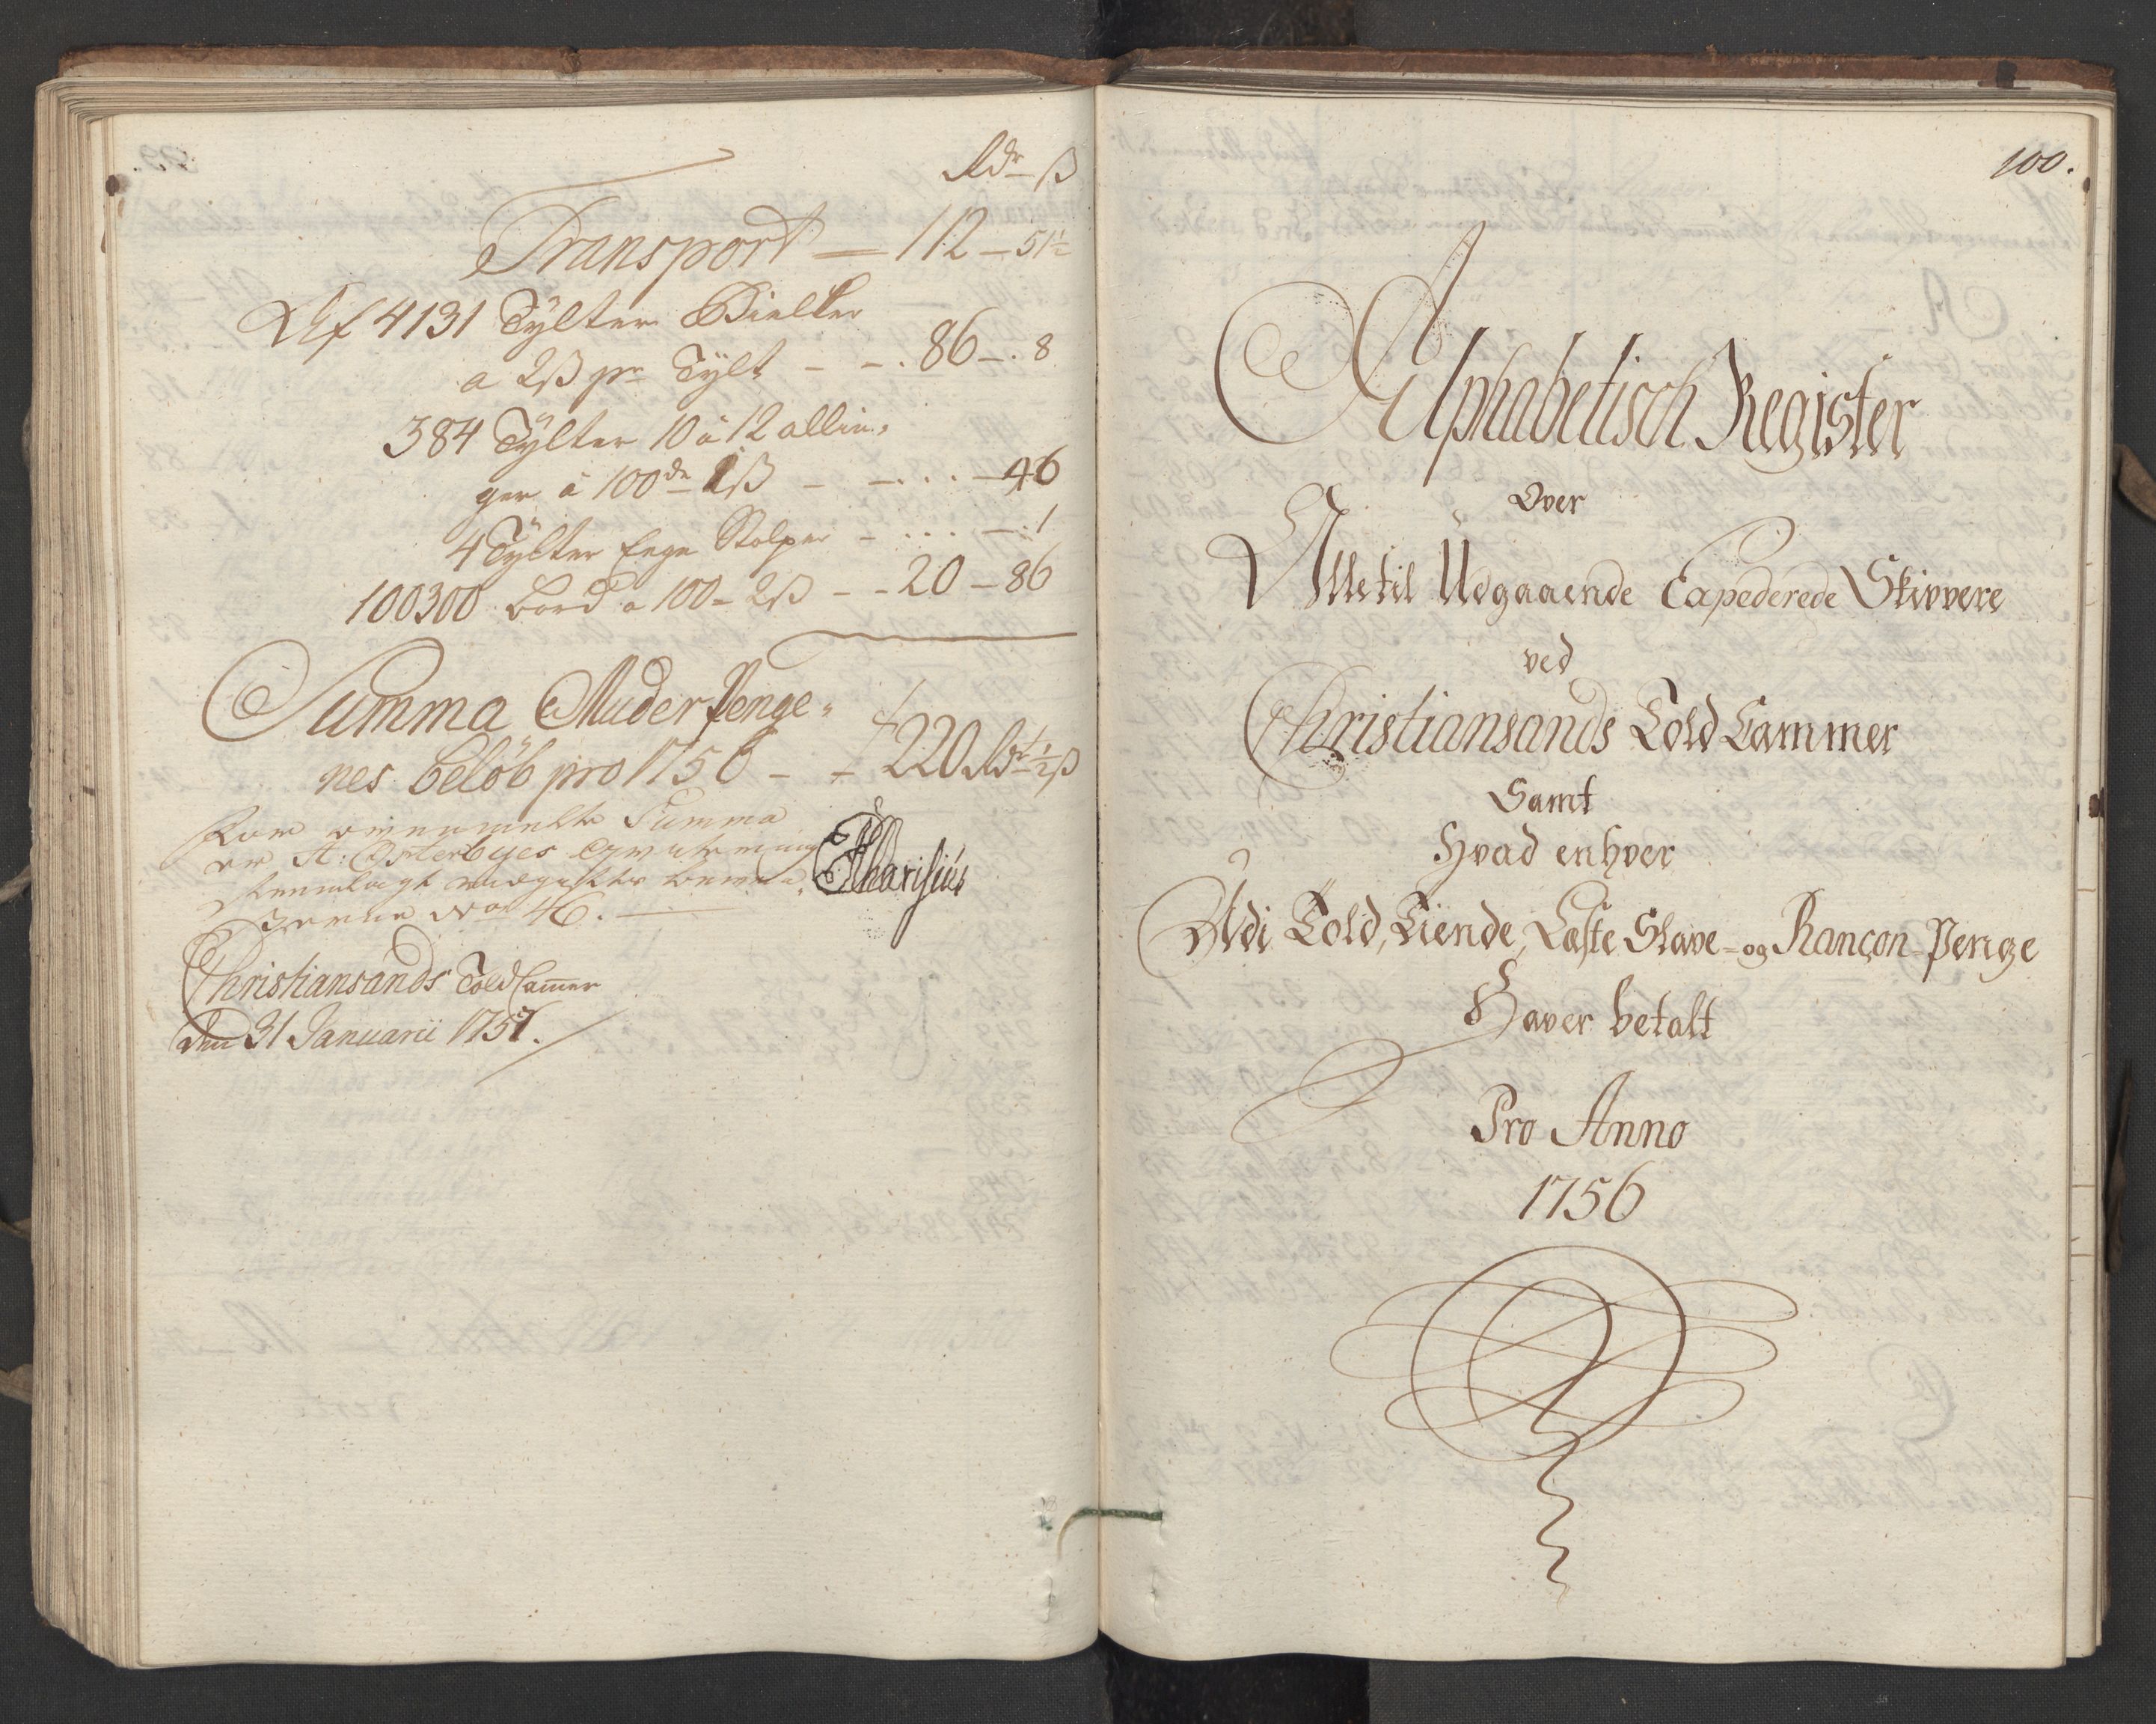 Rdr ß
Transport — 112 — 51½
Af 4131 Tylter Bielker
a 2ß pr Tylt - - . 86 - . 8
384 Tylter 10 a 12 allin,
ger á 100de 2ß - - . . . - 46
4 Tylter Ege Stolper - . . . - . 1
100300 bord a 100 - 2ß - - 20 - 86
Summa Muder Penge,
nes beløb pro 1756 - - 220 Rdr ½ß
For ovenmelte Summa
er A: Østerbyes
No 46.
Christiansands Told Cammer
den 31 Januarii 1757.
100.
Alphabetisch Register
Over
Alle til Udgaaende Expederede Skippere
ved
Christiansands Told Cammer
Samt
Hvad enhver
Udi Told, Tiende, Laste Slave- og Rançon Penge
Haver betalt
Pro Anno
1756